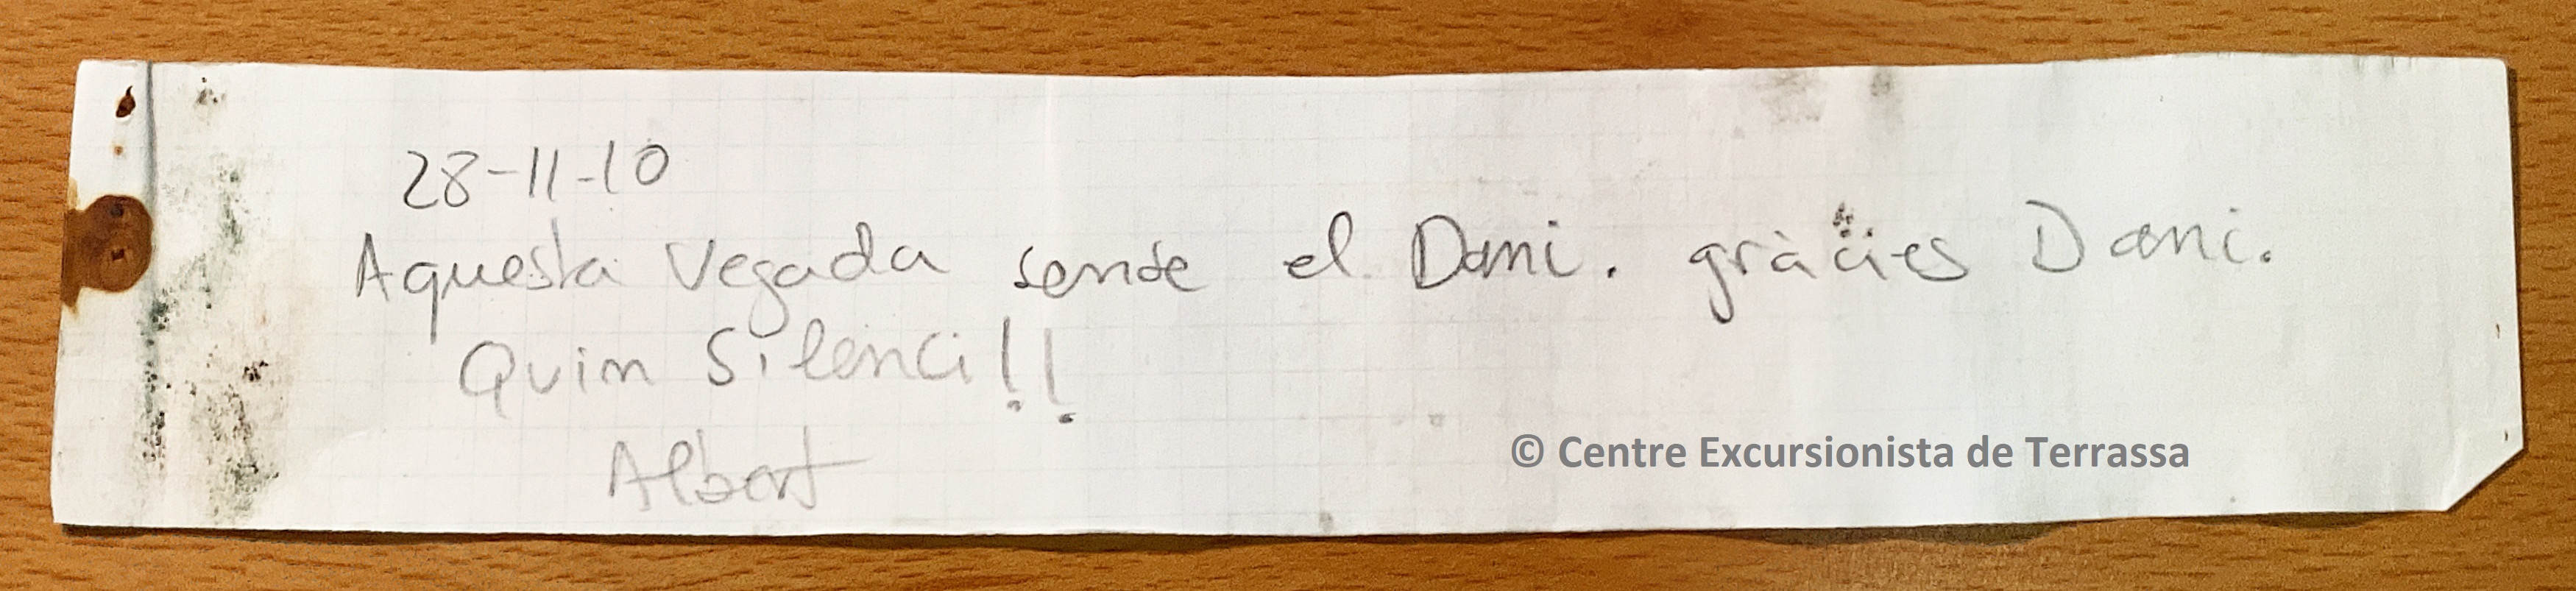 28-11-10
Aquesta vegada sense el Dani. gràcies Dani.
Quim Silenci!!
Albert
© Centre Excursionista de Terrassa